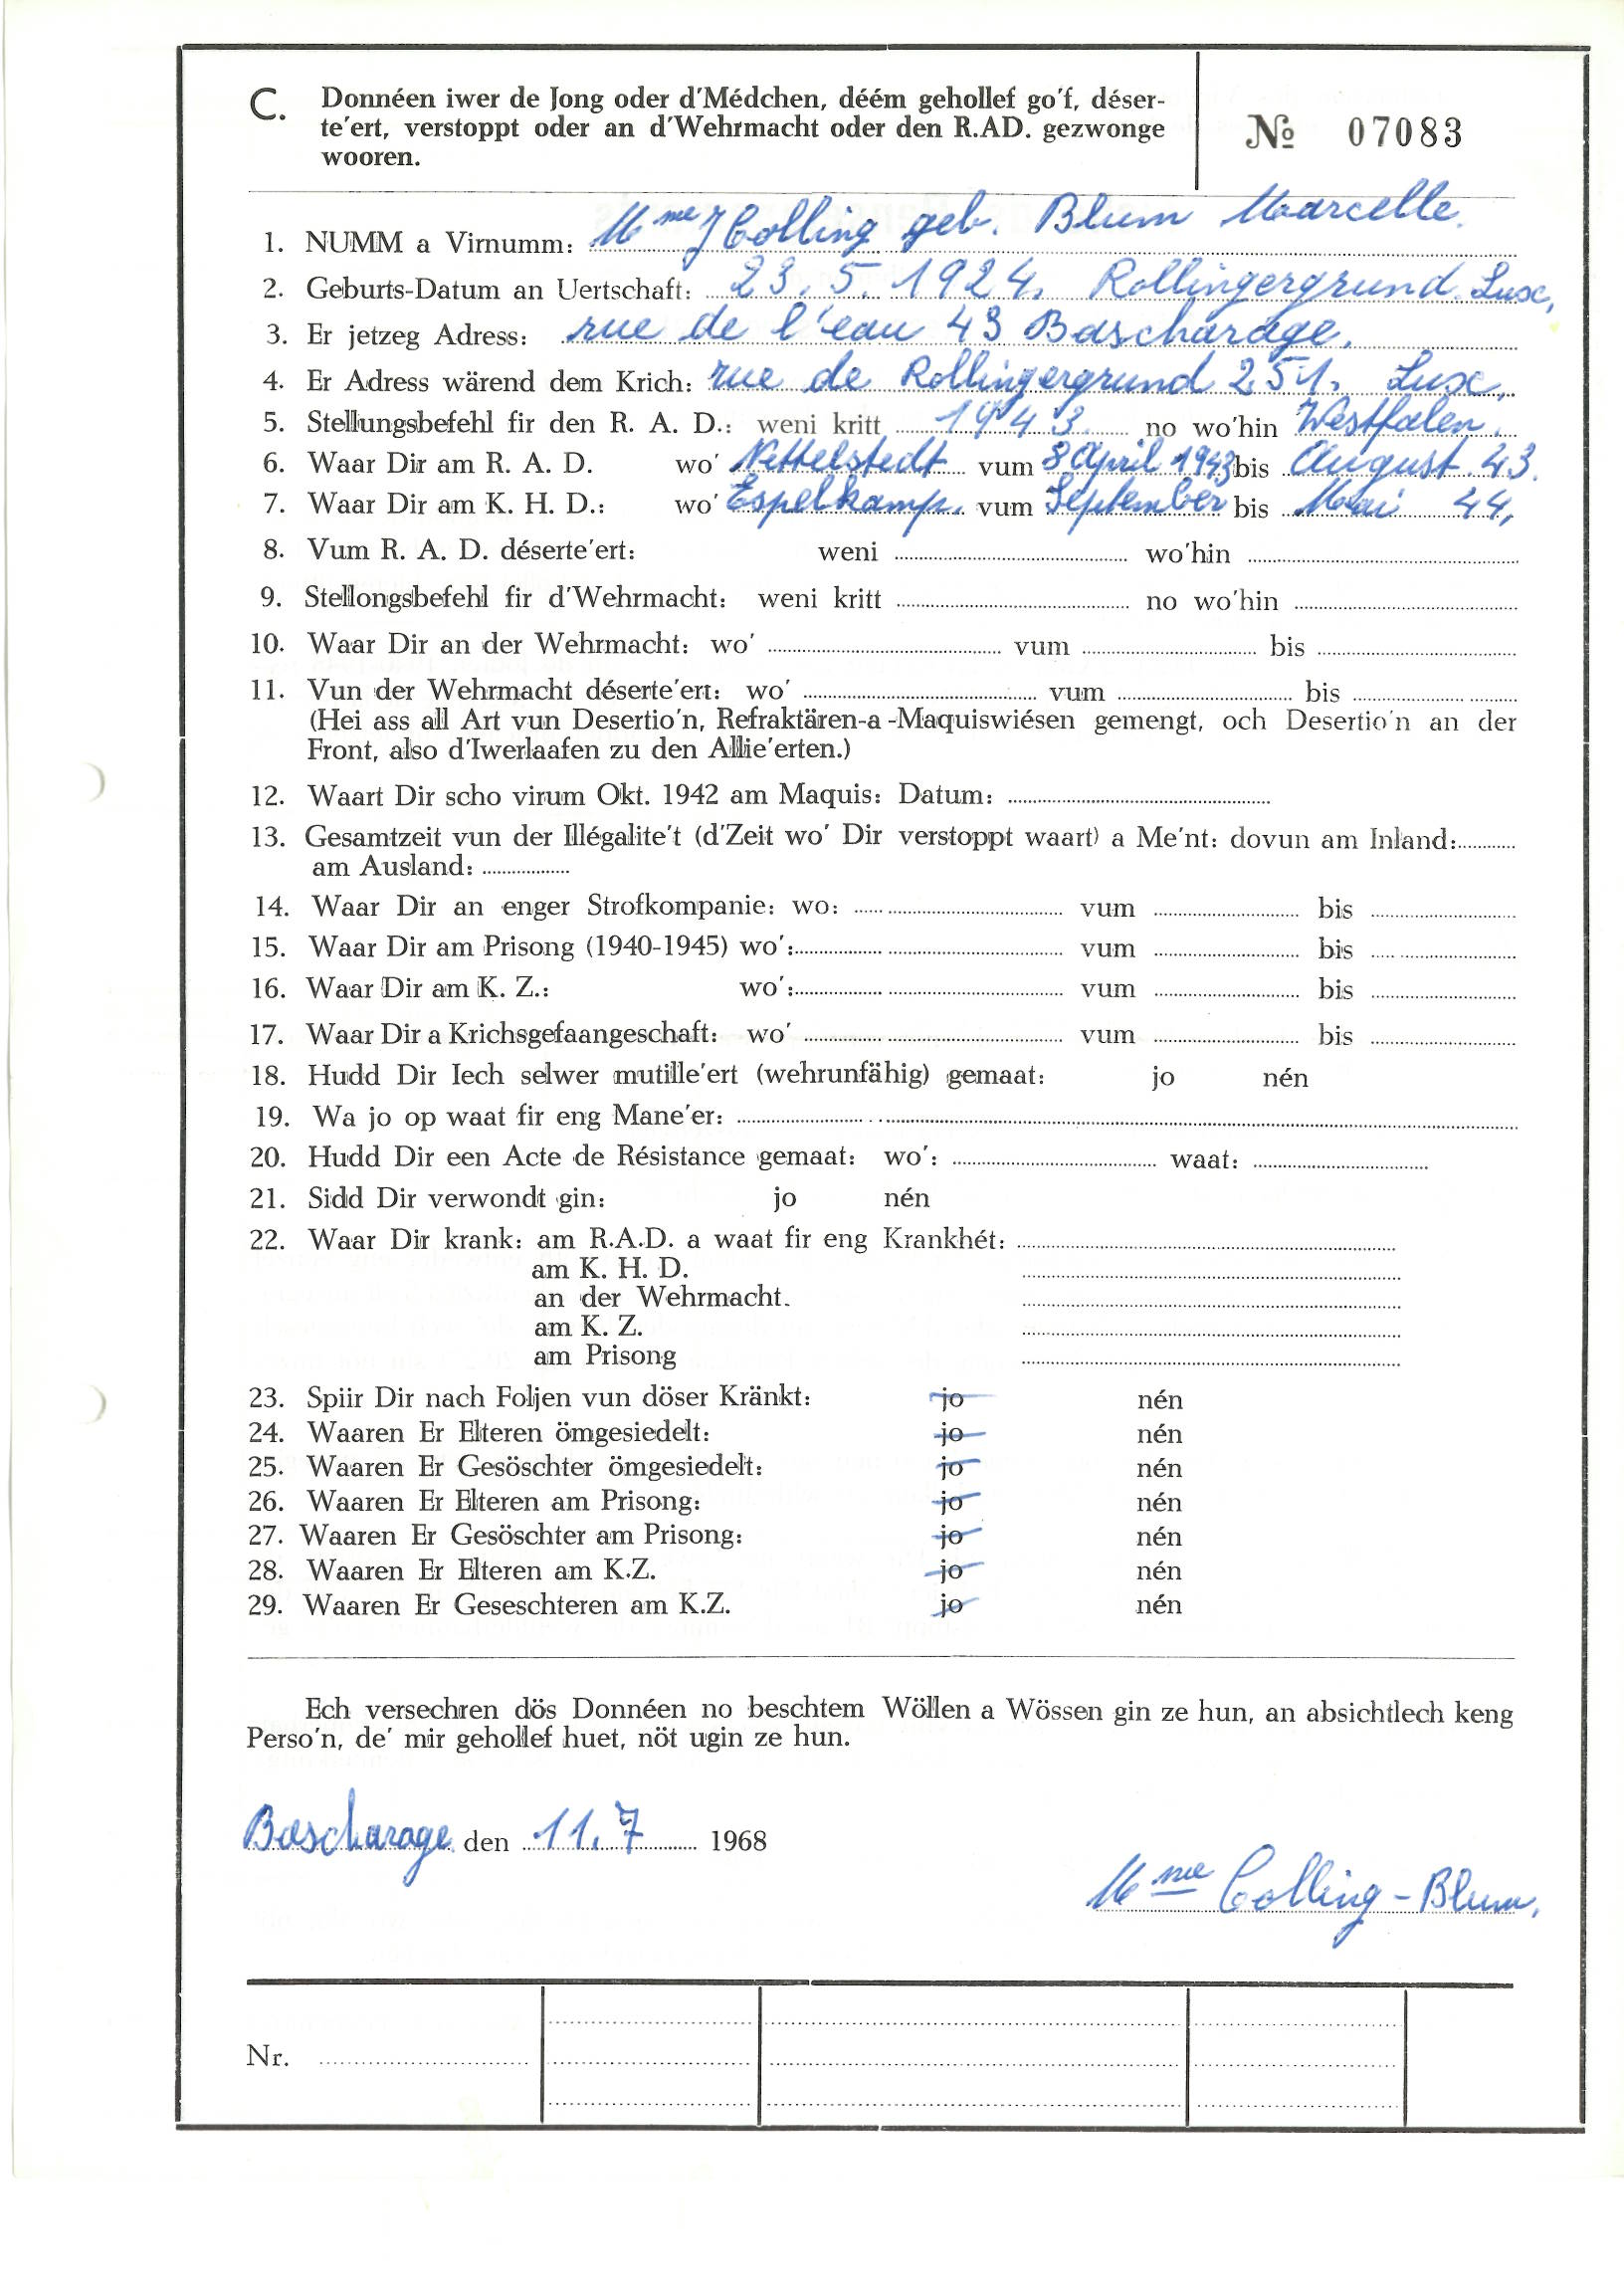 C. Donnéen iwer de Jong oder d'Médchen, déém gehollef go'f, déser-
te'ert, verstoppt oder an d'Wehrmacht oder den R.AD. gezwonge
wooren.
№ 07083
1. NUMM a Virnumm: Mme J Colling geb. Blum Marcelle.
2. Geburts-Datum an Uertschaft: 23. 5. 1924. Rollingergrund. Lux.
3. Er jetzeg Adress: rue de l'eau 43 Bascharage.
4. Er Adress wärend dem Krich: rue de Rollingergrund 251. Lux.
5. Stellungsbefehl fir den R. A. D.: weni kritt 1943. no wo'hin Westfalen.
6. Waar Dir am R. A. D. wo' Nettelstedt vum 8 April 1943 bis August 43.
7. Waar Dir am K. H. D.: wo' Espelkamp. vum September bis Mai 44.
8. Vum R. A. D. déserte'ert: weni wo'hin
9. Stellongsbefehl fir d'Wehrmacht: weni kritt no wo'hin
10. Waar Dir an der Wehrmacht: wo' vum bis
11. Vun der Wehrmacht déserte'ert: wo' vum bis
(Hei ass all Art vun Desertio'n, Refraktären-a-Maquiswiésen gemengt, och Desertio'n an der
Front, also d'Iwerlaafen zu den Allie'erten.)
12. Waart Dir scho virum Okt. 1942 am Maquis: Datum:
13. Gesamtzeit vun der Illégalite't (d'Zeit wo' Dir verstoppt waart) a Me'nt: dovun am Inland:
am Ausland:
14. Waar Dir an enger Strofkompanie: wo: vum bis
15. Waar Dir am Prisong (1940-1945) wo': vum bis
16. Waar Dir am K. Z.: wo': vum bis
17. Waar Dir a Krichsgefaangeschaft: wo' vum bis
18. Hudd Dir Iech selwer mutille'ert (wehrunfähig) gemaat: jo nén
19. Wa jo op waat fir eng Mane'er:
20. Hudd Dir een Acte de Résistance gemaat: wo': waat:
21. Sidd Dir verwondt gin: jo nén
22. Waar Dir krank: am R.A.D. a waat fir eng Krankhét:
am K. H. D.
an der Wehrmacht.
am K. Z.
am Prisong
23. Spiir Dir nach Foljen vun döser Kränkt: jo nén
24. Waaren Er Elteren ömgesiedelt: jo nén
25. Waaren Er Gesöschter ömgesiedelt: jo nén
26. Waaren Er Elteren am Prisong: jo nén
27. Waaren Er Gesöschter am Prisong: jo nén
28. Waaren Er Elteren am K.Z. jo nén
29. Waaren Er Geseschteren am K.Z. jo nén
Ech versechren dös Donnéen no beschtem Wöllen a Wössen gin ze hun, an absichtlech keng
Perso'n, de' mir gehollef huet, nöt ugin ze hun.
Bascharage den 11. 7 1968
Mme Colling-Blum.
Nr.